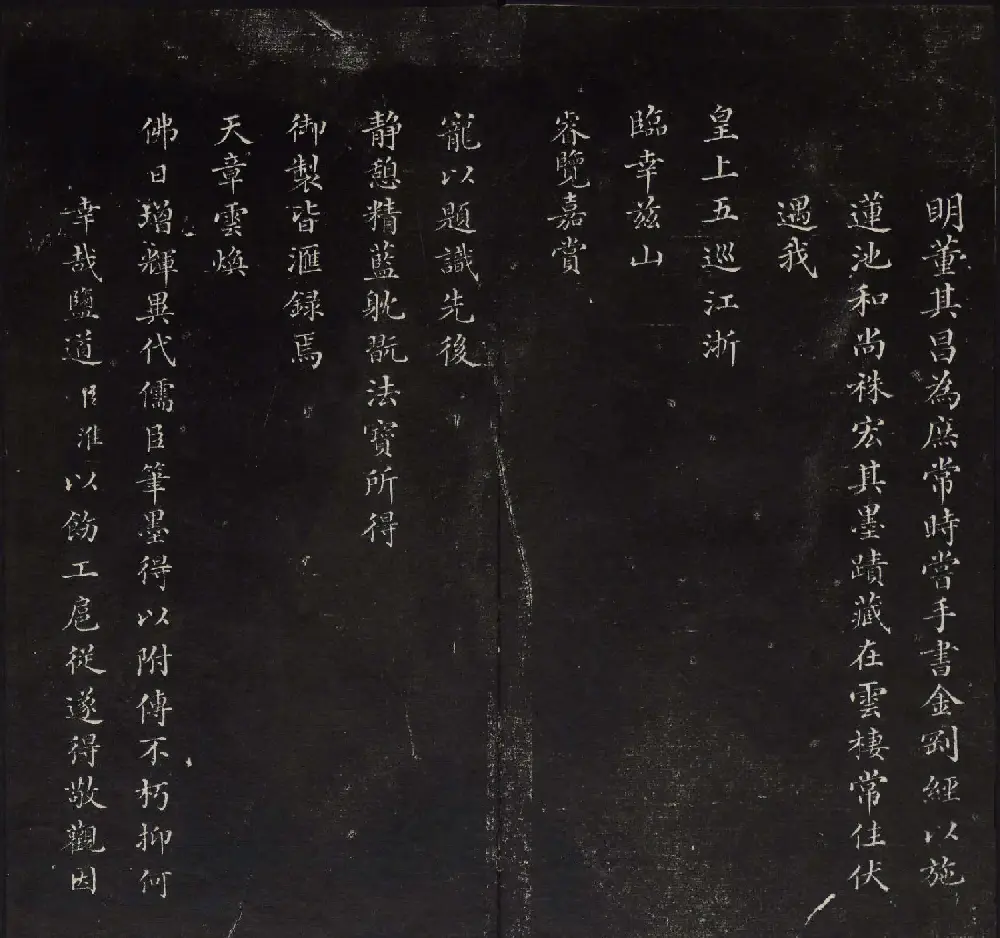 明董其昌為庶常時嘗手書金剛經以施
蓮池和尚袾宏其墨蹟藏在雲棲常住伏
遇我
皇上五巡江浙
臨幸茲山
睿覽嘉賞
寵以題識先後
静憩精藍躭翫法寶所得
御製皆滙録焉
天章雲煥
佛日增輝異代儒臣筆墨得以附傳不朽抑何
幸哉鹽道臣淮以飭工扈從遂得敬觀因